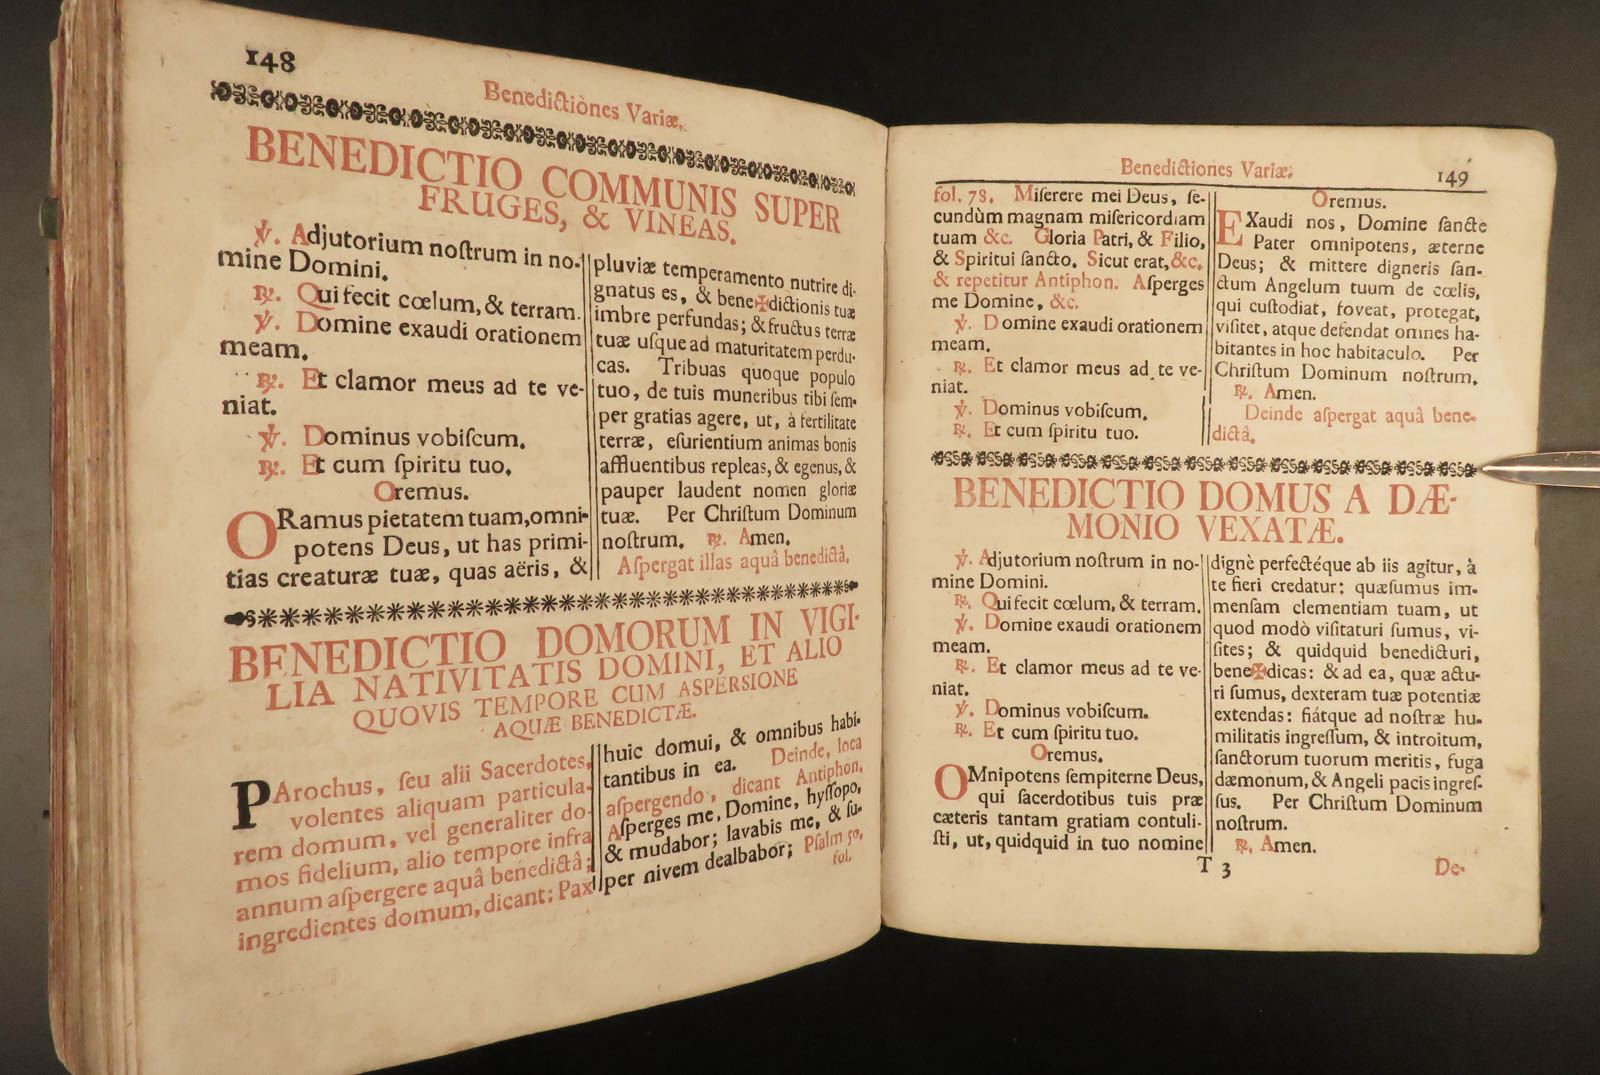 148
Benedictiònes Variæ.
BENEDICTIO COMMUNIS SUPER
FRUGES, & VINEAS.
℣. Adjutorium noſtrum in no-
mine Domini.
℟. Qui fecit cœlum, & terram.
℣. Domine exaudi orationem
meam.
℟. Et clamor meus ad te ve-
niat.
℣. Dominus vobiſcum.
℟. Et cum ſpiritu tuo.
Oremus.
ORamus pietatem tuam, omni-
potens Deus, ut has primi-
tias creaturæ tuæ, quas aëris, &
pluviæ temperamento nutrire di-
gnatus es, & bene✠dictionis tuæ
imbre perfundas; & fructus terræ
tuæ uſque ad maturitatem perdu-
cas. Tribuas quoque populo
tuo, de tuis muneribus tibi ſem-
per gratias agere, ut, à fertilitate
terræ, eſurientium animas bonis
affluentibus repleas, & egenus, &
pauper laudent nomen gloriæ
tuæ. Per Chriſtum Dominum
noſtrum. ℟. Amen.
Aſpergat illas aquâ benedictâ.
BENEDICTIO DOMORUM IN VIGI-
LIA NATIVITATIS DOMINI, ET ALIO
QUOVIS TEMPORE CUM ASPERSIONE
AQUÆ BENEDICTÆ.
PArochus, ſeu alii Sacerdotes,
volentes aliquam particula-
rem domum, vel generaliter do-
mos fidelium, alio tempore infra
annum aſpergere aquâ benedictâ;
ingredientes domum, dicant: Pax
huic domui, & omnibus habi-
tantibus in ea. Deinde, loca
aſpergendo, dicant Antiphon.
Aſperges me, Domine, hyſſopo,
& mundabor; lavabis me, & ſu-
per nivem dealbabor; Pſalm 50.
fol.
Benedictiones Variæ.
149
fol. 78. Miſerere mei Deus, ſe-
cundùm magnam miſericordiam
tuam &c. Gloria Patri, & Filio,
& Spiritui ſancto. Sicut erat, &c.
& repetitur Antiphon. Aſperges
me Domine, &c.
℣. Domine exaudi orationem
meam.
℟. Et clamor meus ad te ve-
niat.
℣. Dominus vobiſcum.
℟. Et cum ſpiritu tuo.
Oremus.
EXaudi nos, Domine ſancte
Pater omnipotens, æterne
Deus; & mittere digneris ſan-
ctum Angelum tuum de cœlis,
qui cuſtodiat, foveat, protegat,
viſitet, atque defendat omnes ha-
bitantes in hoc habitaculo. Per
Chriſtum Dominum noſtrum.
℟. Amen.
Deinde aſpergat aquâ bene-
dictâ.
BENEDICTIO DOMUS A DÆ-
MONIO VEXATÆ.
℣. Adjutorium noſtrum in no-
mine Domini.
℟. Qui fecit cœlum, & terram.
℣. Domine exaudi orationem
meam.
℟. Et clamor meus ad te ve-
niat.
℣. Dominus vobiſcum.
℟. Et cum ſpiritu tuo.
Oremus.
OMnipotens ſempiterne Deus,
qui ſacerdotibus tuis præ
cæteris tantam gratiam contuli-
ſti, ut, quidquid in tuo nomine
dignè perfectéque ab iis agitur, à
te fieri credatur: quæſumus im-
menſam clementiam tuam, ut
quod modò viſitaturi ſumus, vi-
ſites; & quidquid benedicturi,
bene✠dicas: & ad ea, quæ actu-
ri ſumus, dexteram tuæ potentiæ
extendas: fiátque ad noſtræ hu-
militatis ingreſſum, & introitum,
ſanctorum tuorum meritis, fuga
dæmonum, & Angeli pacis ingreſ-
ſus. Per Chriſtum Dominum
noſtrum.
℟. Amen.
T 3
De-